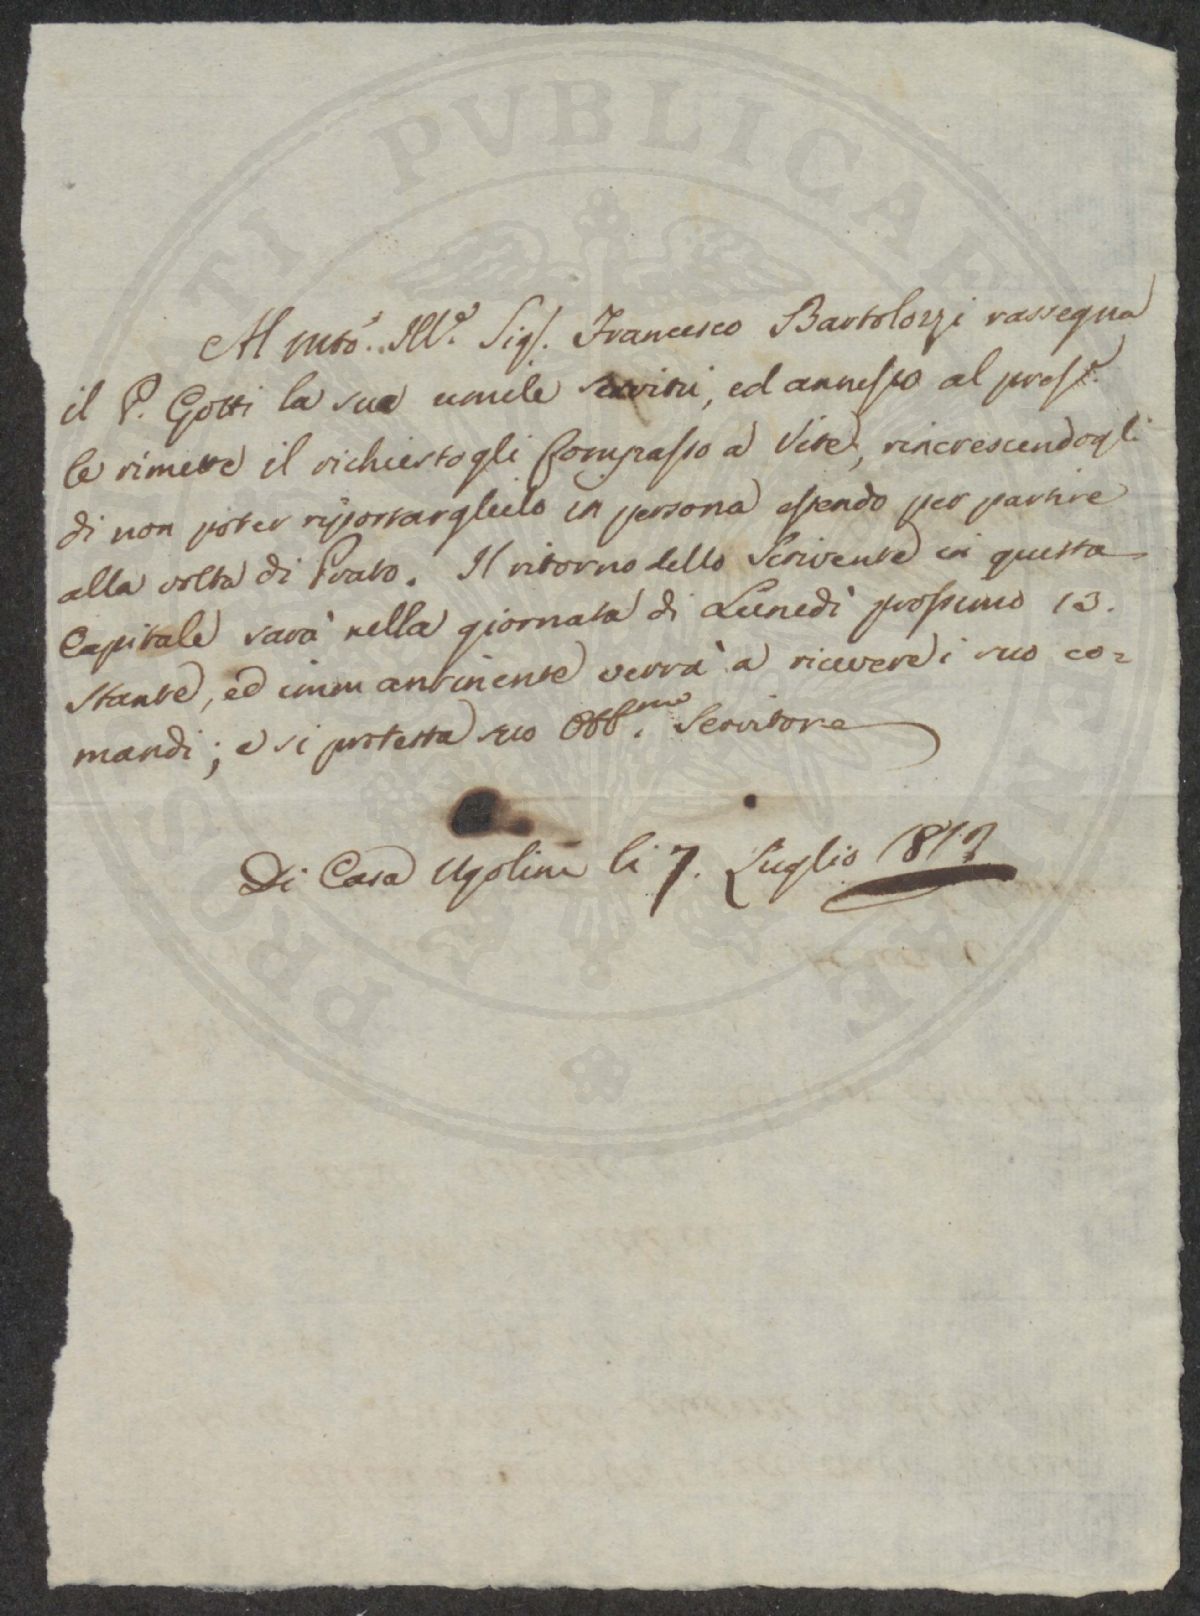 Al Mto. Ill.e Sig.r Francesco Bartolozzi rassegna
il P. Gotti la sua umile servitù, ed annesso al pres.e
le rimette il richiestogli Compasso a Vite, rincrescendogli
di non poter riportarglielo in persona essendo per partire
alla volta di Prato. Il ritorno dello Scrivente in questa
Capitale sarà nella giornata di Lunedì prossimo 13.
stante, ed immantinente verrà a ricevere i suo co=
mandi; e si protesta suo Obb.mo Servitore
Di Casa Ugolini li 7. Luglio
PROSPERITATI PVBLICAE